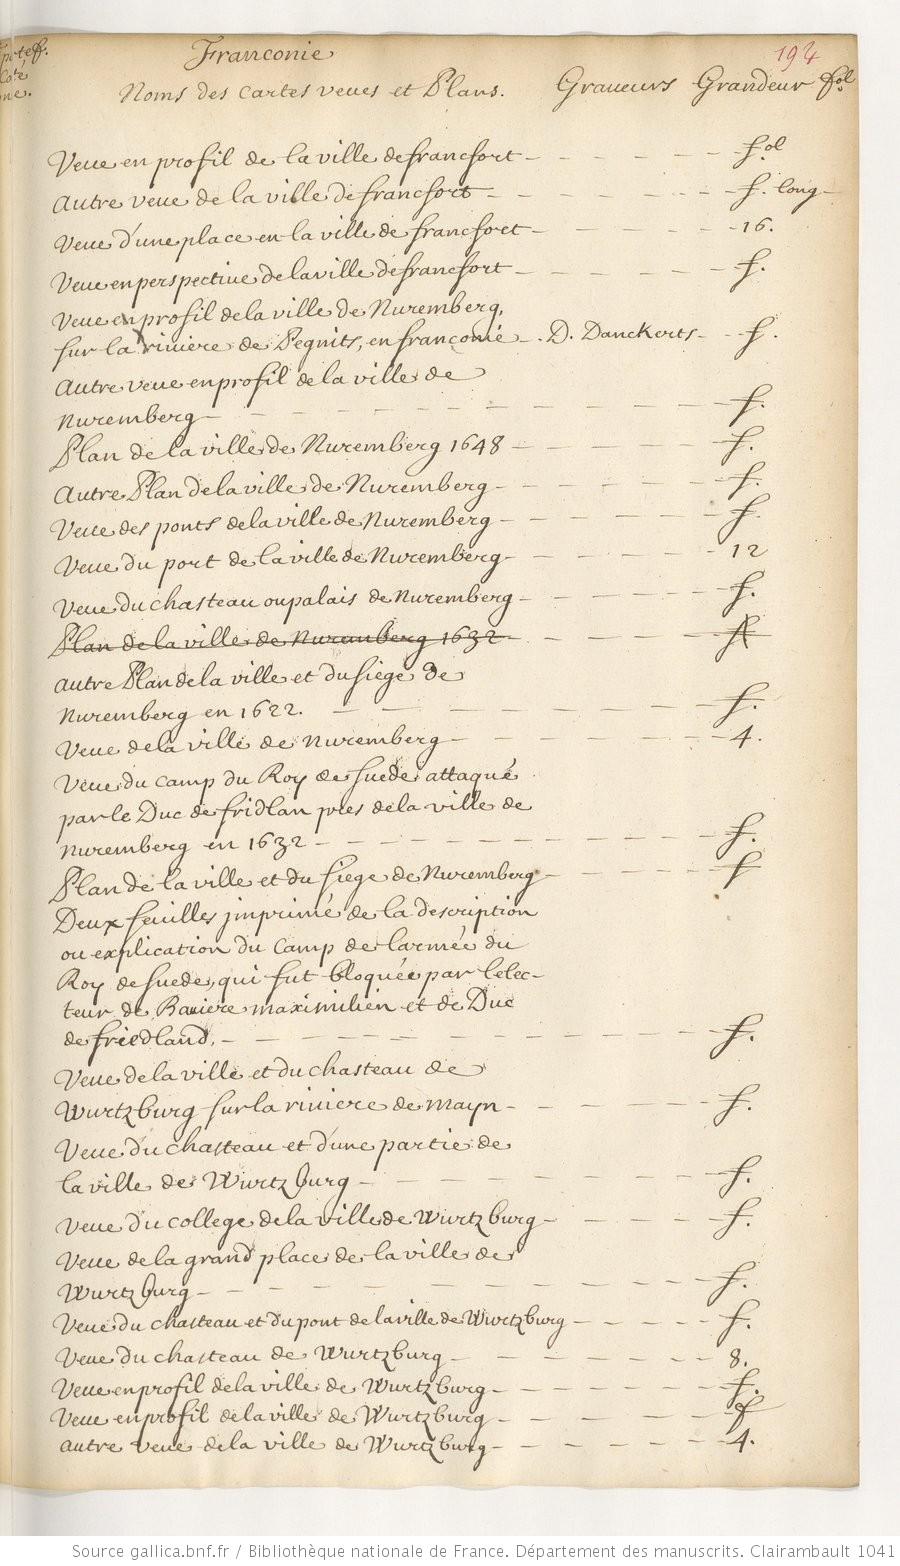 Franconie 194
Noms des cartes veues et Plans. Graveurs Grandeur fol
Veue en profil de la ville de francfort - f.ol
Autre veue de la ville de francfort - f. long
Veue d'une place en la ville de francfort - 16.
Veue en perspective de la ville de francfort - f.
Veue en profil de la ville de Nuremberg,
sur la riviere de Pegnits, en franconie - D. Danckerts - f.
Autre veue en profil de la ville de
Nuremberg - f.
Plan de la ville de Nuremberg 1648 - f.
Autre Plan de la ville de Nuremberg - f.
Veue des ponts de la ville de Nuremberg - f.
Veue du port de la ville de Nuremberg - 12
Veue du chasteau ou palais de Nuremberg - f.
Plan de la ville de Nuremberg 1632 - f.
autre Plan de la ville et du siege de
Nuremberg en 1622. - f.
Veue de la ville de Nuremberg - 4.
Veue du camp du Roy de suede attaqué
par le Duc de fridlan pres de la ville de
Nuremberg en 1632 - f.
Plan de la ville et du siege de Nuremberg - f
Deux feuilles jmprimé de la description
ou explication du camp de l'armée du
Roy de suede, qui fut bloquée par l'elec-
teur de Baviere maximilien et de Duc
de friedland, - f.
Veue de la ville et du chasteau de
Wurtzburg sur la riviere de mayn - f.
Veue du chasteau et d'une partie de
la ville de Wurtzburg - f.
Veue du college de la ville de Wurtzburg - f.
Veue de la grand place de la ville de
Wurtzburg - f.
Veue du chasteau et du pont de la ville de Wurtzburg - f.
Veue du chasteau de Wurtzburg - 8.
Veue en profil de la ville de Wurtzburg - f.
Veue en profil de la ville de Wurtzburg - f
autre veue de la ville de Wurtzburg - 4.
Source gallica.bnf.fr / Bibliothèque nationale de France. Département des manuscrits. Clairambault 1041